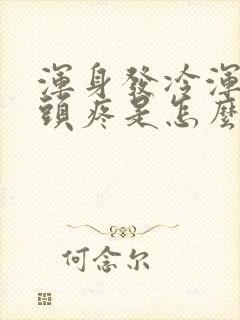 渾身發冷渾
頭疼是怎麼
何念尔